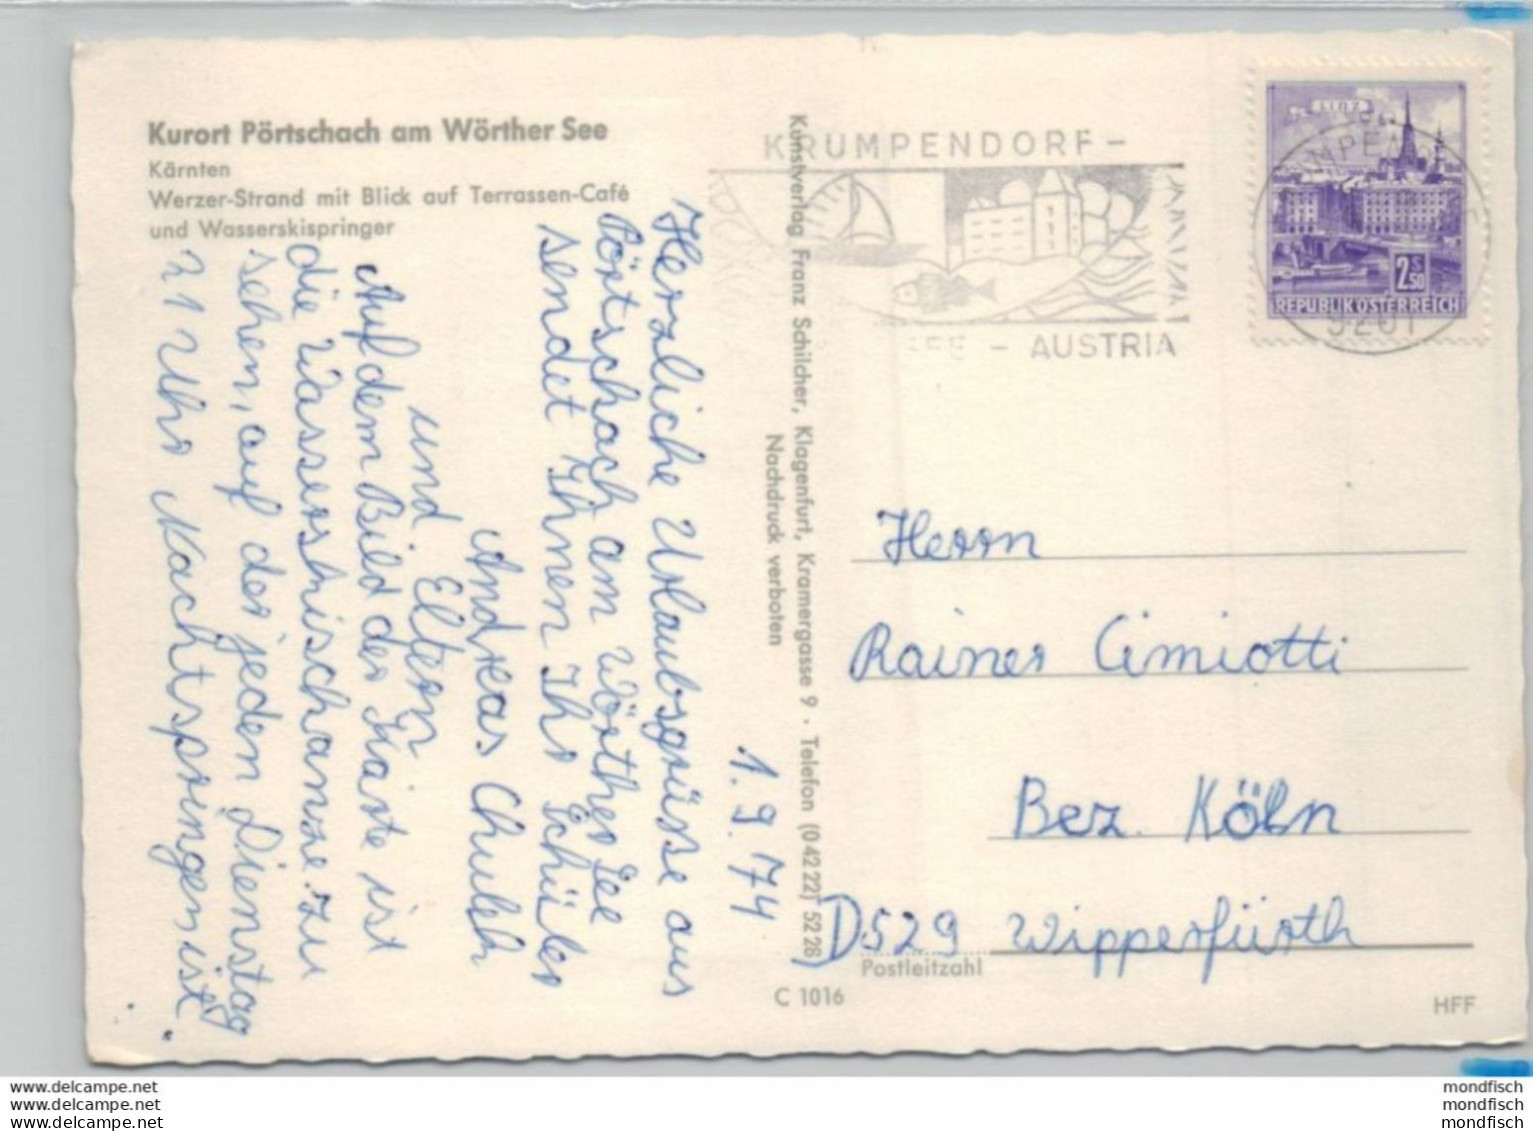 Kurort Pörtschach am Wörther See
Kärnten
Werzer-Strand mit Blick auf Terrassen-Café
und Wasserskispringer
Herzliche Urlaubsgrüsse aus
Pörtschach am Wörther See
sendet Ihnen Ihr Schüler
Andreas
und Eltern
Auf dem Bild der Karte ist
die Wasserskischanze zu
sehen, auf der jeden Dienstag
21 Uhr Nachtspringen ist.
1.9.74
Kunstverlag Franz Schilcher, Klagenfurt, Kramergasse 9 · Telefon (0 42 22) 52 28
Nachdruck verboten
C 1016
KRUMPENDORF -
- AUSTRIA
LINZ
2 S 50
REPUBLIK ÖSTERREICH
9201
Herrn
Rainer Cimiotti
Bez. Köln
D 529 Wipperfürth
Postleitzahl
HFF
www.delcampe.net
www.delcampe.net
www.delcampe.net
mondfisch
mondfisch
mondfisch